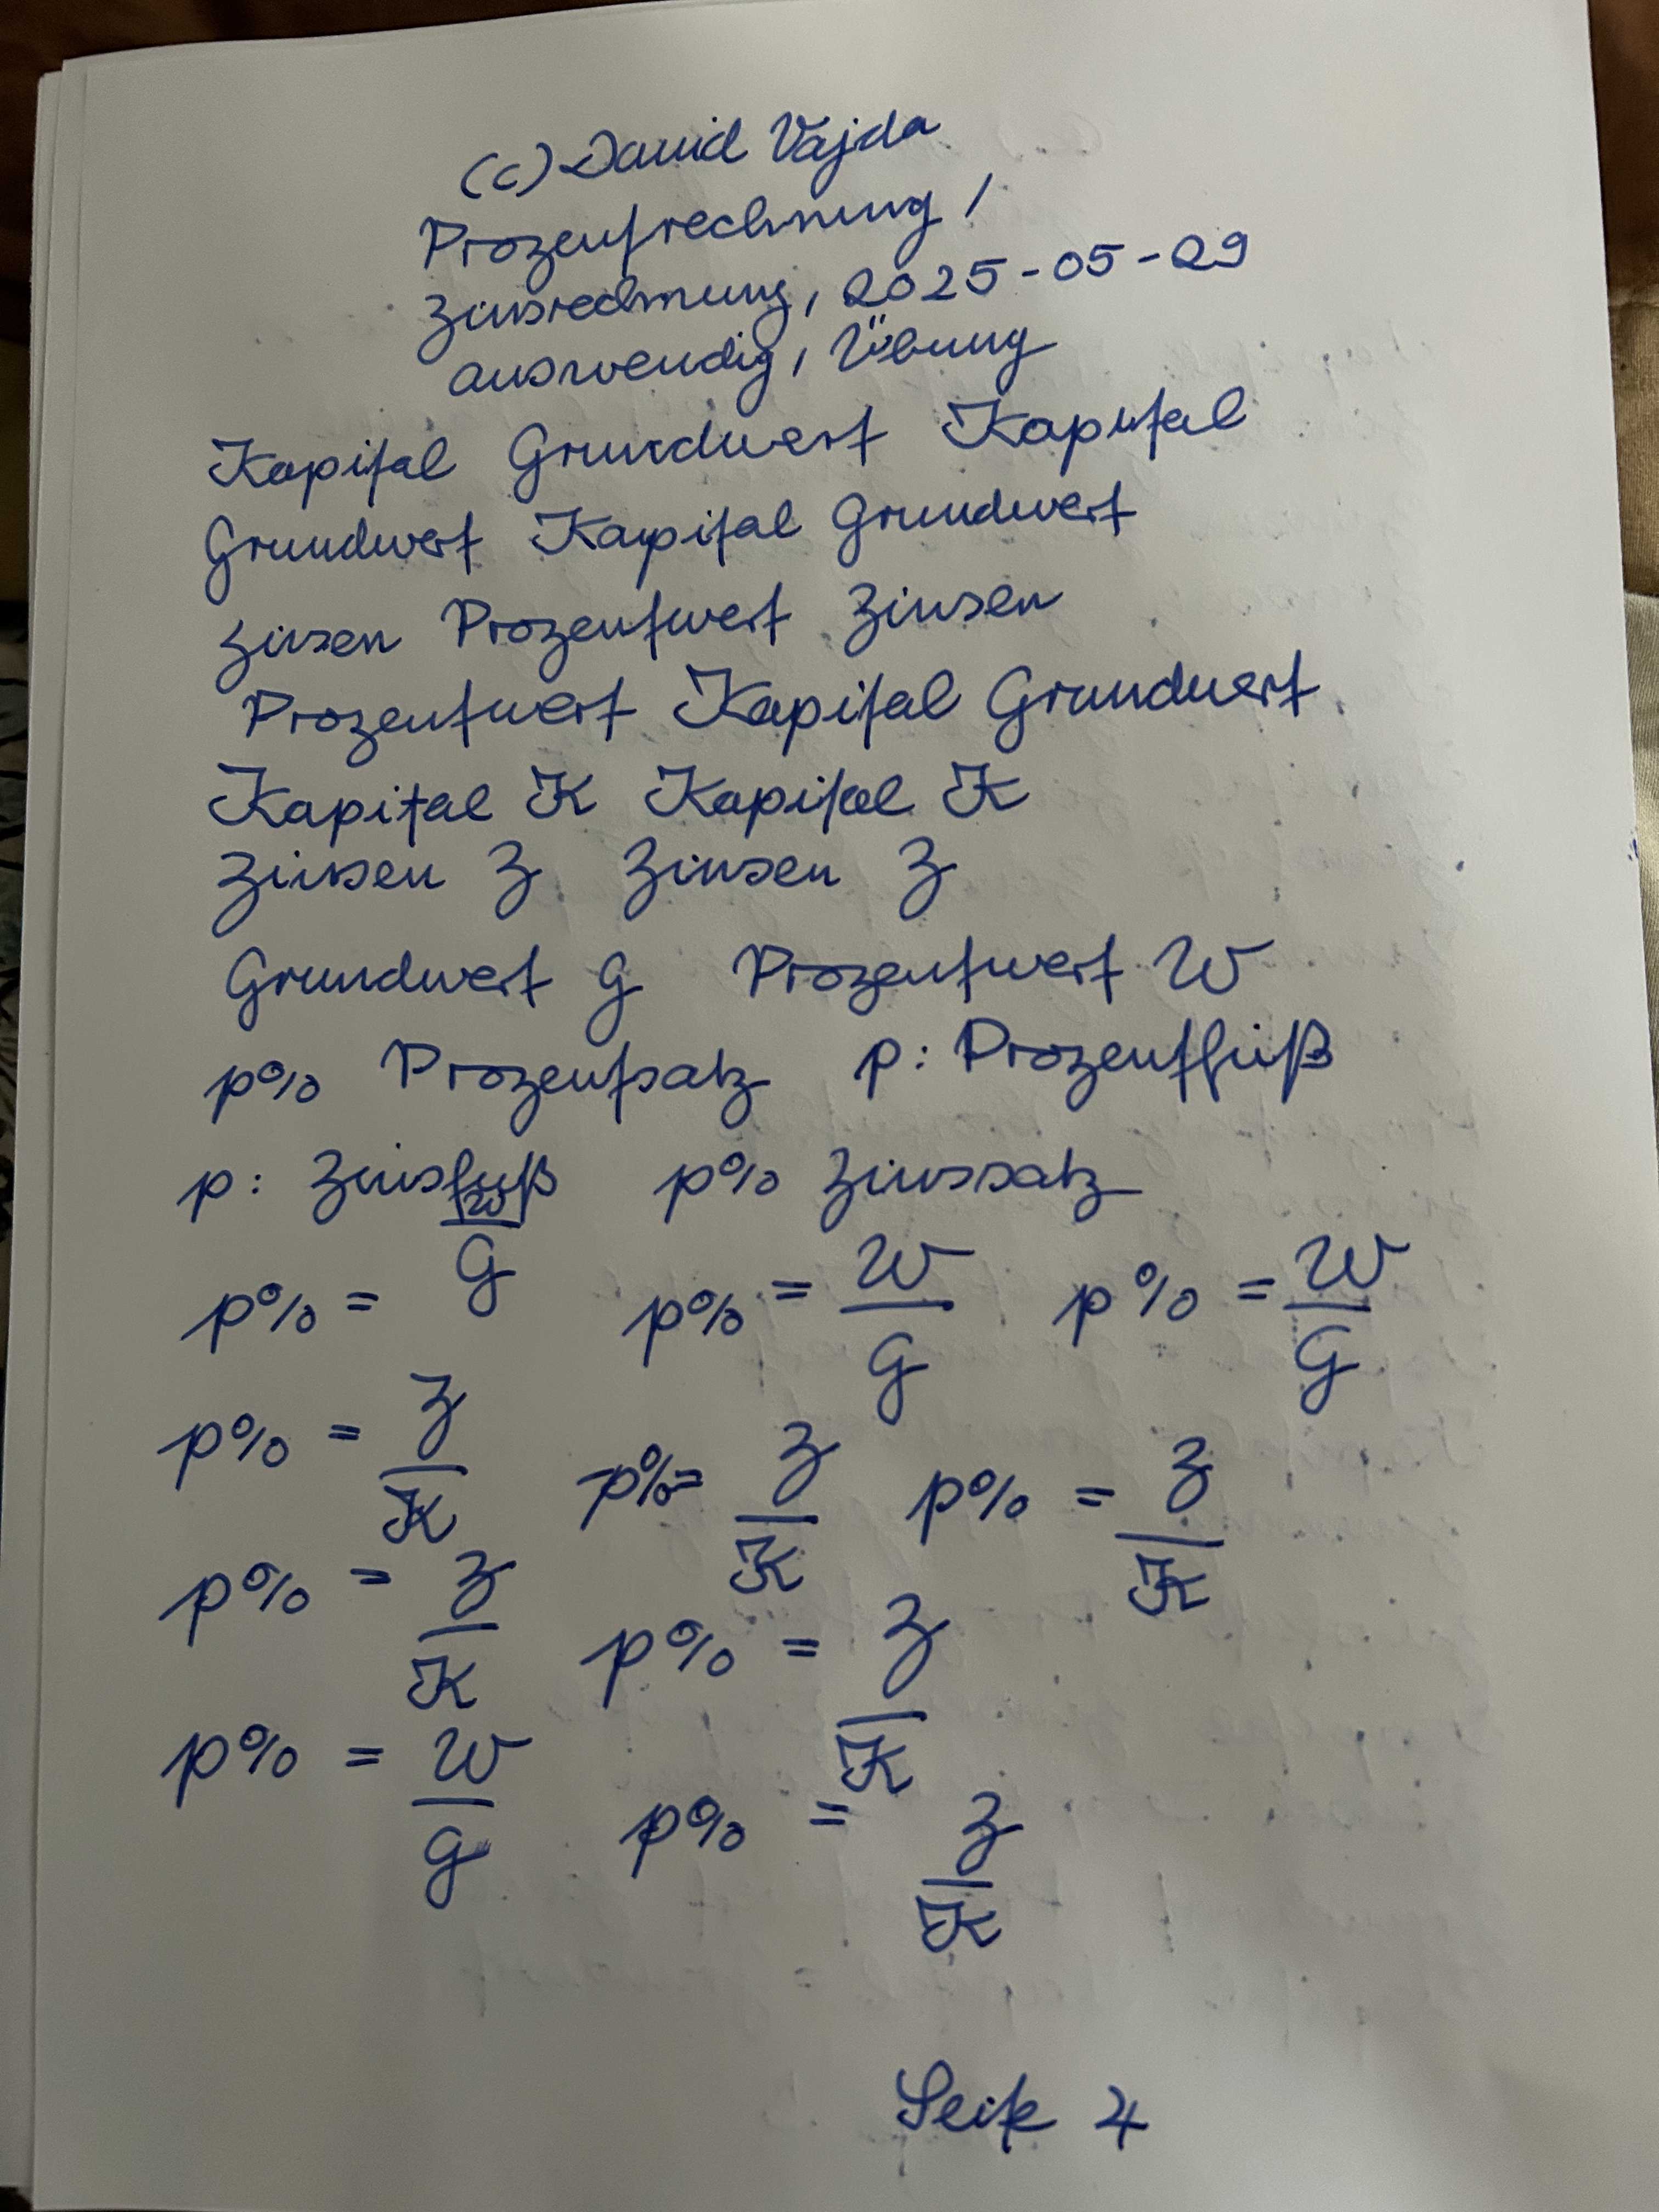 (c) David Vajda
Prozentrechnung /
Zinsrechnung, 2025-05-29
auswendig, Übung
Kapital Grundwert Kapital
Grundwert Kapital Grundwert
Zinsen Prozentwert Zinsen
Prozentwert Kapital Grundwert
Kapital K Kapital K
Zinsen Z Zinsen Z
Grundwert G Prozentwert W
p% Prozentsatz p: Prozentfuß
p: Zinsfuß p% Zinssatz
p% = W/G p% = W/G p% = W/G
p% = Z/K p% = Z/K p% = Z/K
p% = Z/K p% = Z/K
p% = W/G p% = Z/K
Seite 4